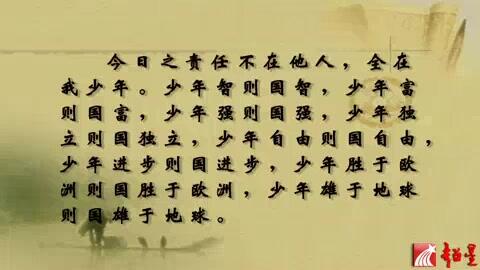 今日之责任不在他人，全在
我少年。少年智则国智，少年富
则国富，少年强则国强，少年独
立则国独立，少年自由则国自由，
少年进步则国进步，少年胜于欧
洲则国胜于欧洲，少年雄于地球
则国雄于地球。